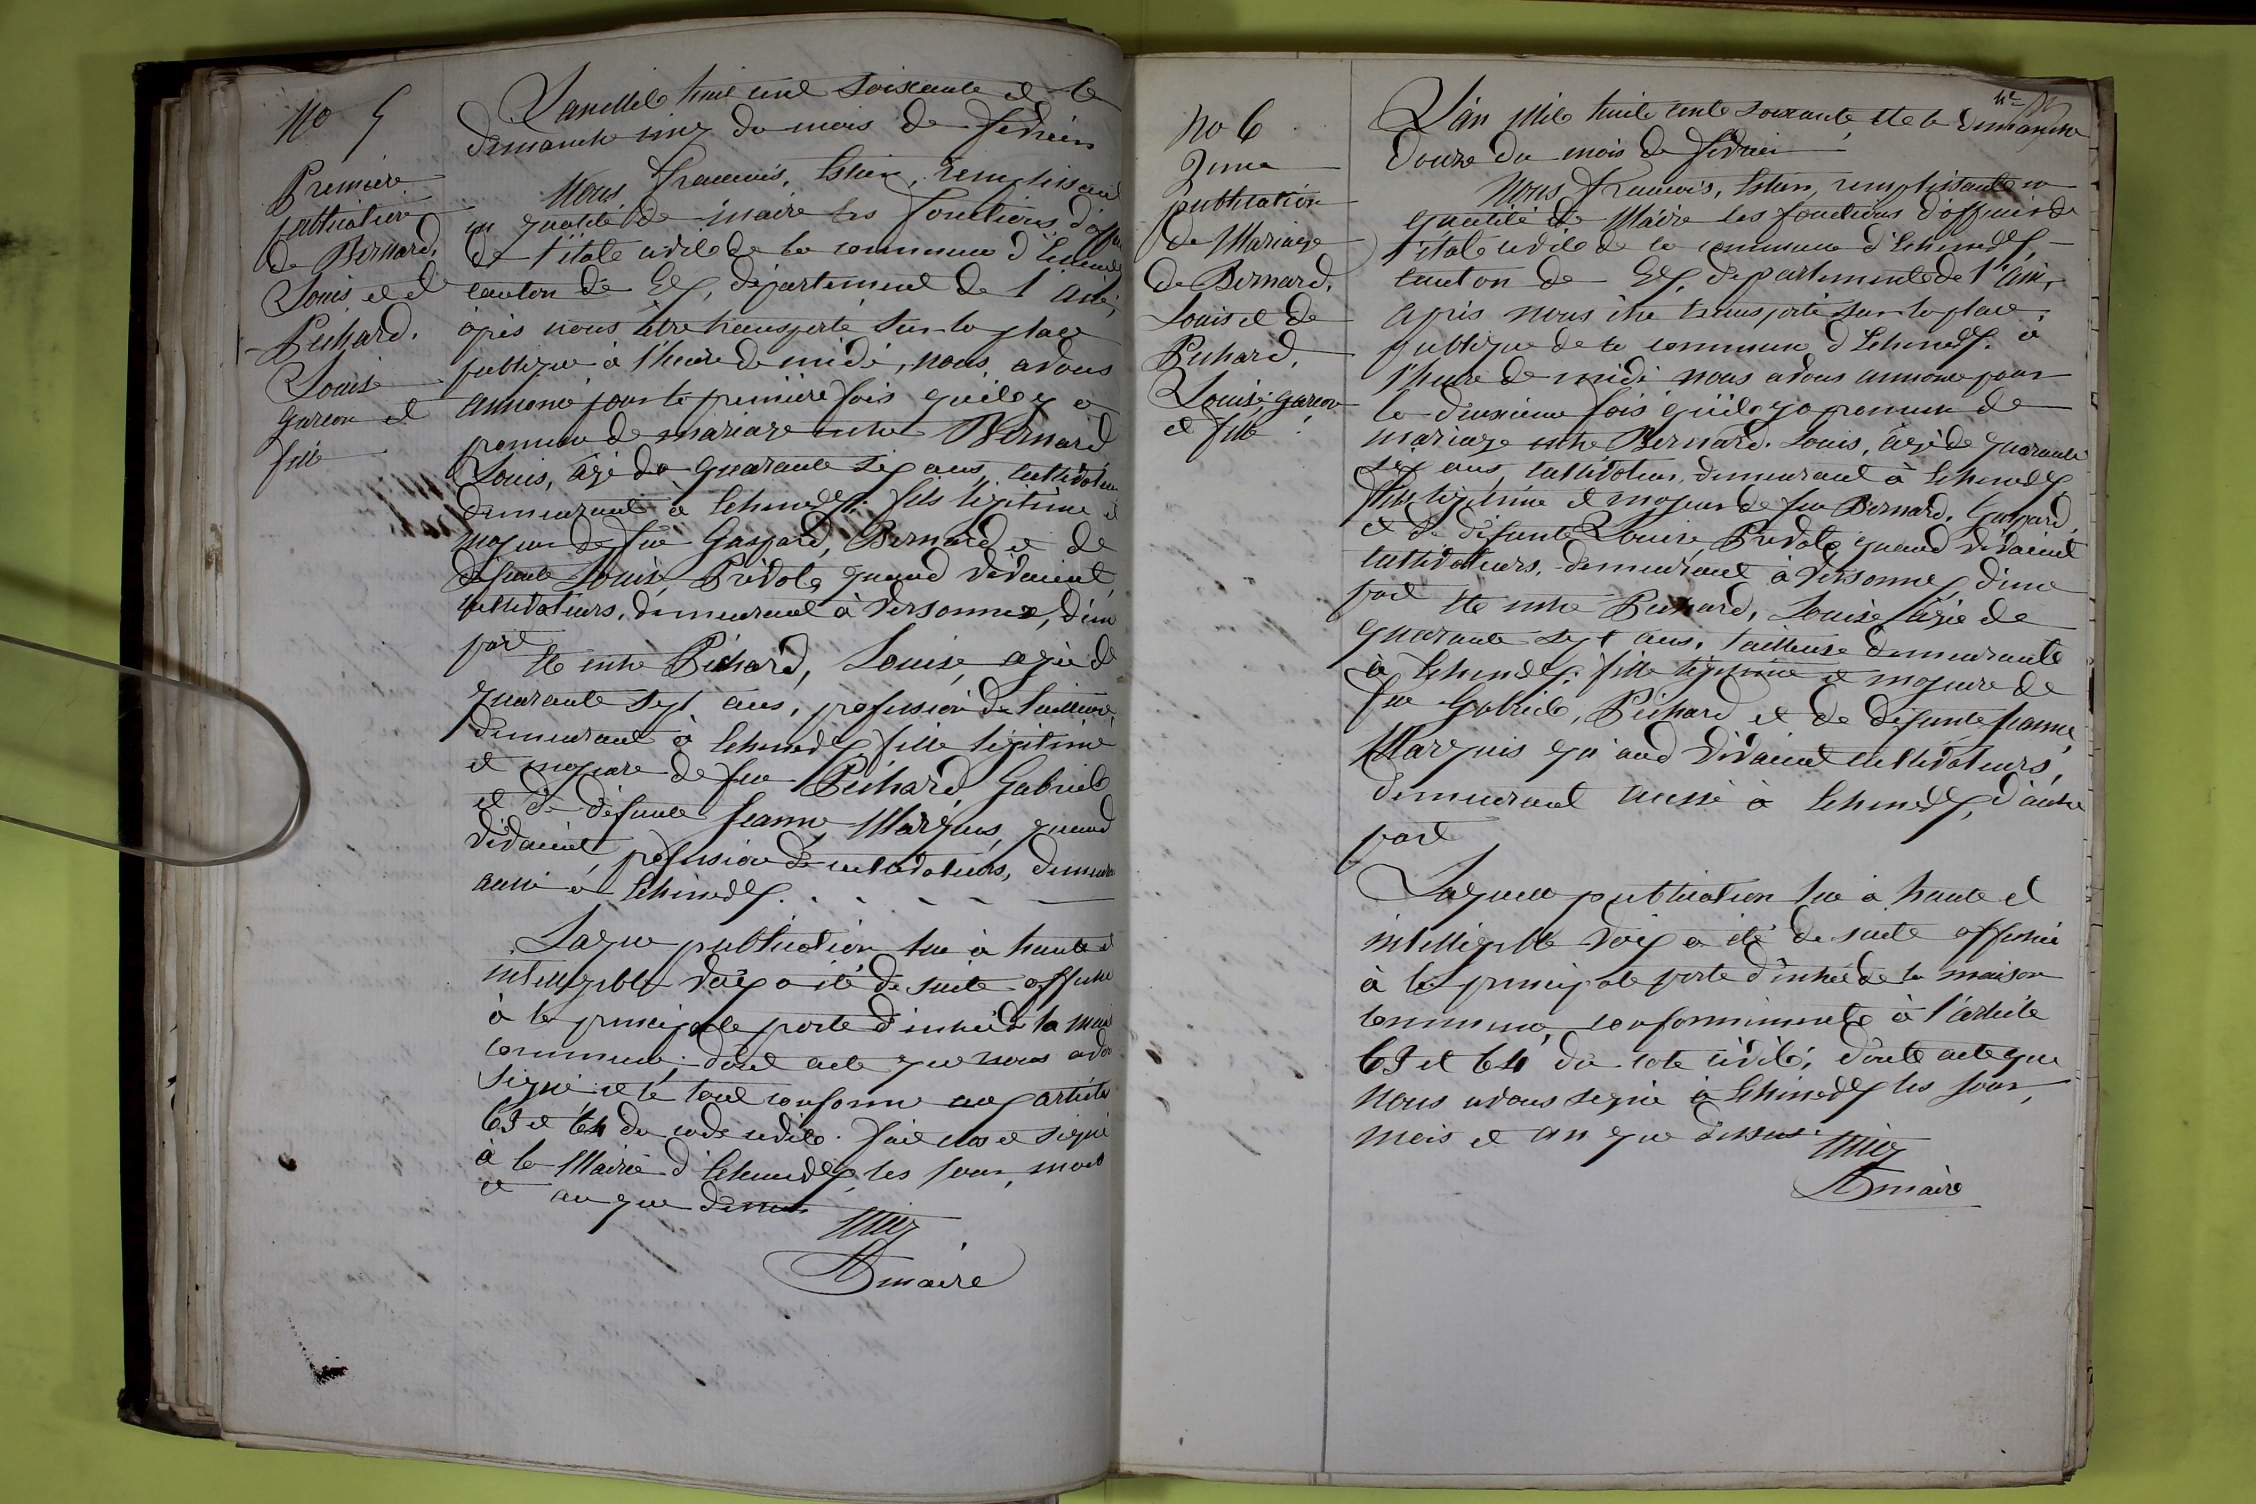 No 5
Première
publication
de Bernard,
Louis et de
Pechard.
Louise
garcon et
fille
L'an Mil huit cent soixante et le
dimanche cinq du mois de fevrier
Nous Francois, Estien, remplissant
en qualité de maire les fonctions d'
de l'état civil de la commune d'Echenevex
canton de Gex, département de l'Ain,
après nous être transporté sur la place
publique à l'heure de midi, nous avons
annoncé pour la première fois qu'il y a
promesse de mariage entre Bernard
Louis, âgé de quarante six ans, cultivateur
demeurant à Echenevex. fils légitime et
majeur de feu Gaspard, Bernard et de
défunte Louise, Prévot, quand vivaient
cultivateurs, demeurant à Versonnex, d'une
part
Et entre Péchard, Louise, agée de
quarante sept ans, profession de tailleuse,
demeurant à Echenevex fille légitime
et majeure de feu Péchard Gabriel
et de défunte Jeanne Marquis, quand
vivaient, profession de cultivateurs, demeurant
aussi à Echenevex.
Laquelle publication lue à haute et
intelligible voix a été de suite affichée
à la principale porte d'entrée de la maison
commune, dont acte que nous avons
signé, et le tout conforme aux articles
63 et 64 du code civil. fait clos et signé
à la Mairie d'Echenevex, les jour, mois
et an que dessus
maire
No 6
2eme
publication
de Mariage
de Bernard,
Louis et de
Pechard,
Louise, garcon
et fille
L'an Mil huit cent soixante Et le dimanche
douze du mois de fevrier
Nous Francois, Estien, remplissant en
qualité de Maire les fonctions d'officier de
l'état civil de la commune d'Echenevex,
canton de Gex, département de l'Ain,
après nous être transporté sur la place
publique de la commune d'Echenevex. à
l'heure de midi nous avons annoncé pour
la deuxième fois qu'il y a promesse de
mariage entre Bernard. Louis, âgé de quarante
six ans, cultivateur, demeurant à Echenevex
fils légitime et majeur de feu Bernard, Gaspard,
et de défunte Louise, Prévot, quand vivaient
cultivateurs, demeurant à Versonnex, d'une
part Et entre Pechard, Louise, âgée de
quarante sept ans, tailleuse demeurante
à Echenevex. fille légitime et majeure de
feu Gabriel, Péchard et de défunte Jeanne,
Marquis qu'and vivaient cultivateurs,
demeurant aussi à Echenevex, d'autre
part
Laquelle publication lue à haute et
intelligible voix a été de suite affichée
à la principale porte d'entrée de la maison
commune, conformément à l'article
63 et 64 du code civil, dont acte que
nous avons signé à Echenevex les jour,
mois et an que dessus.
maire